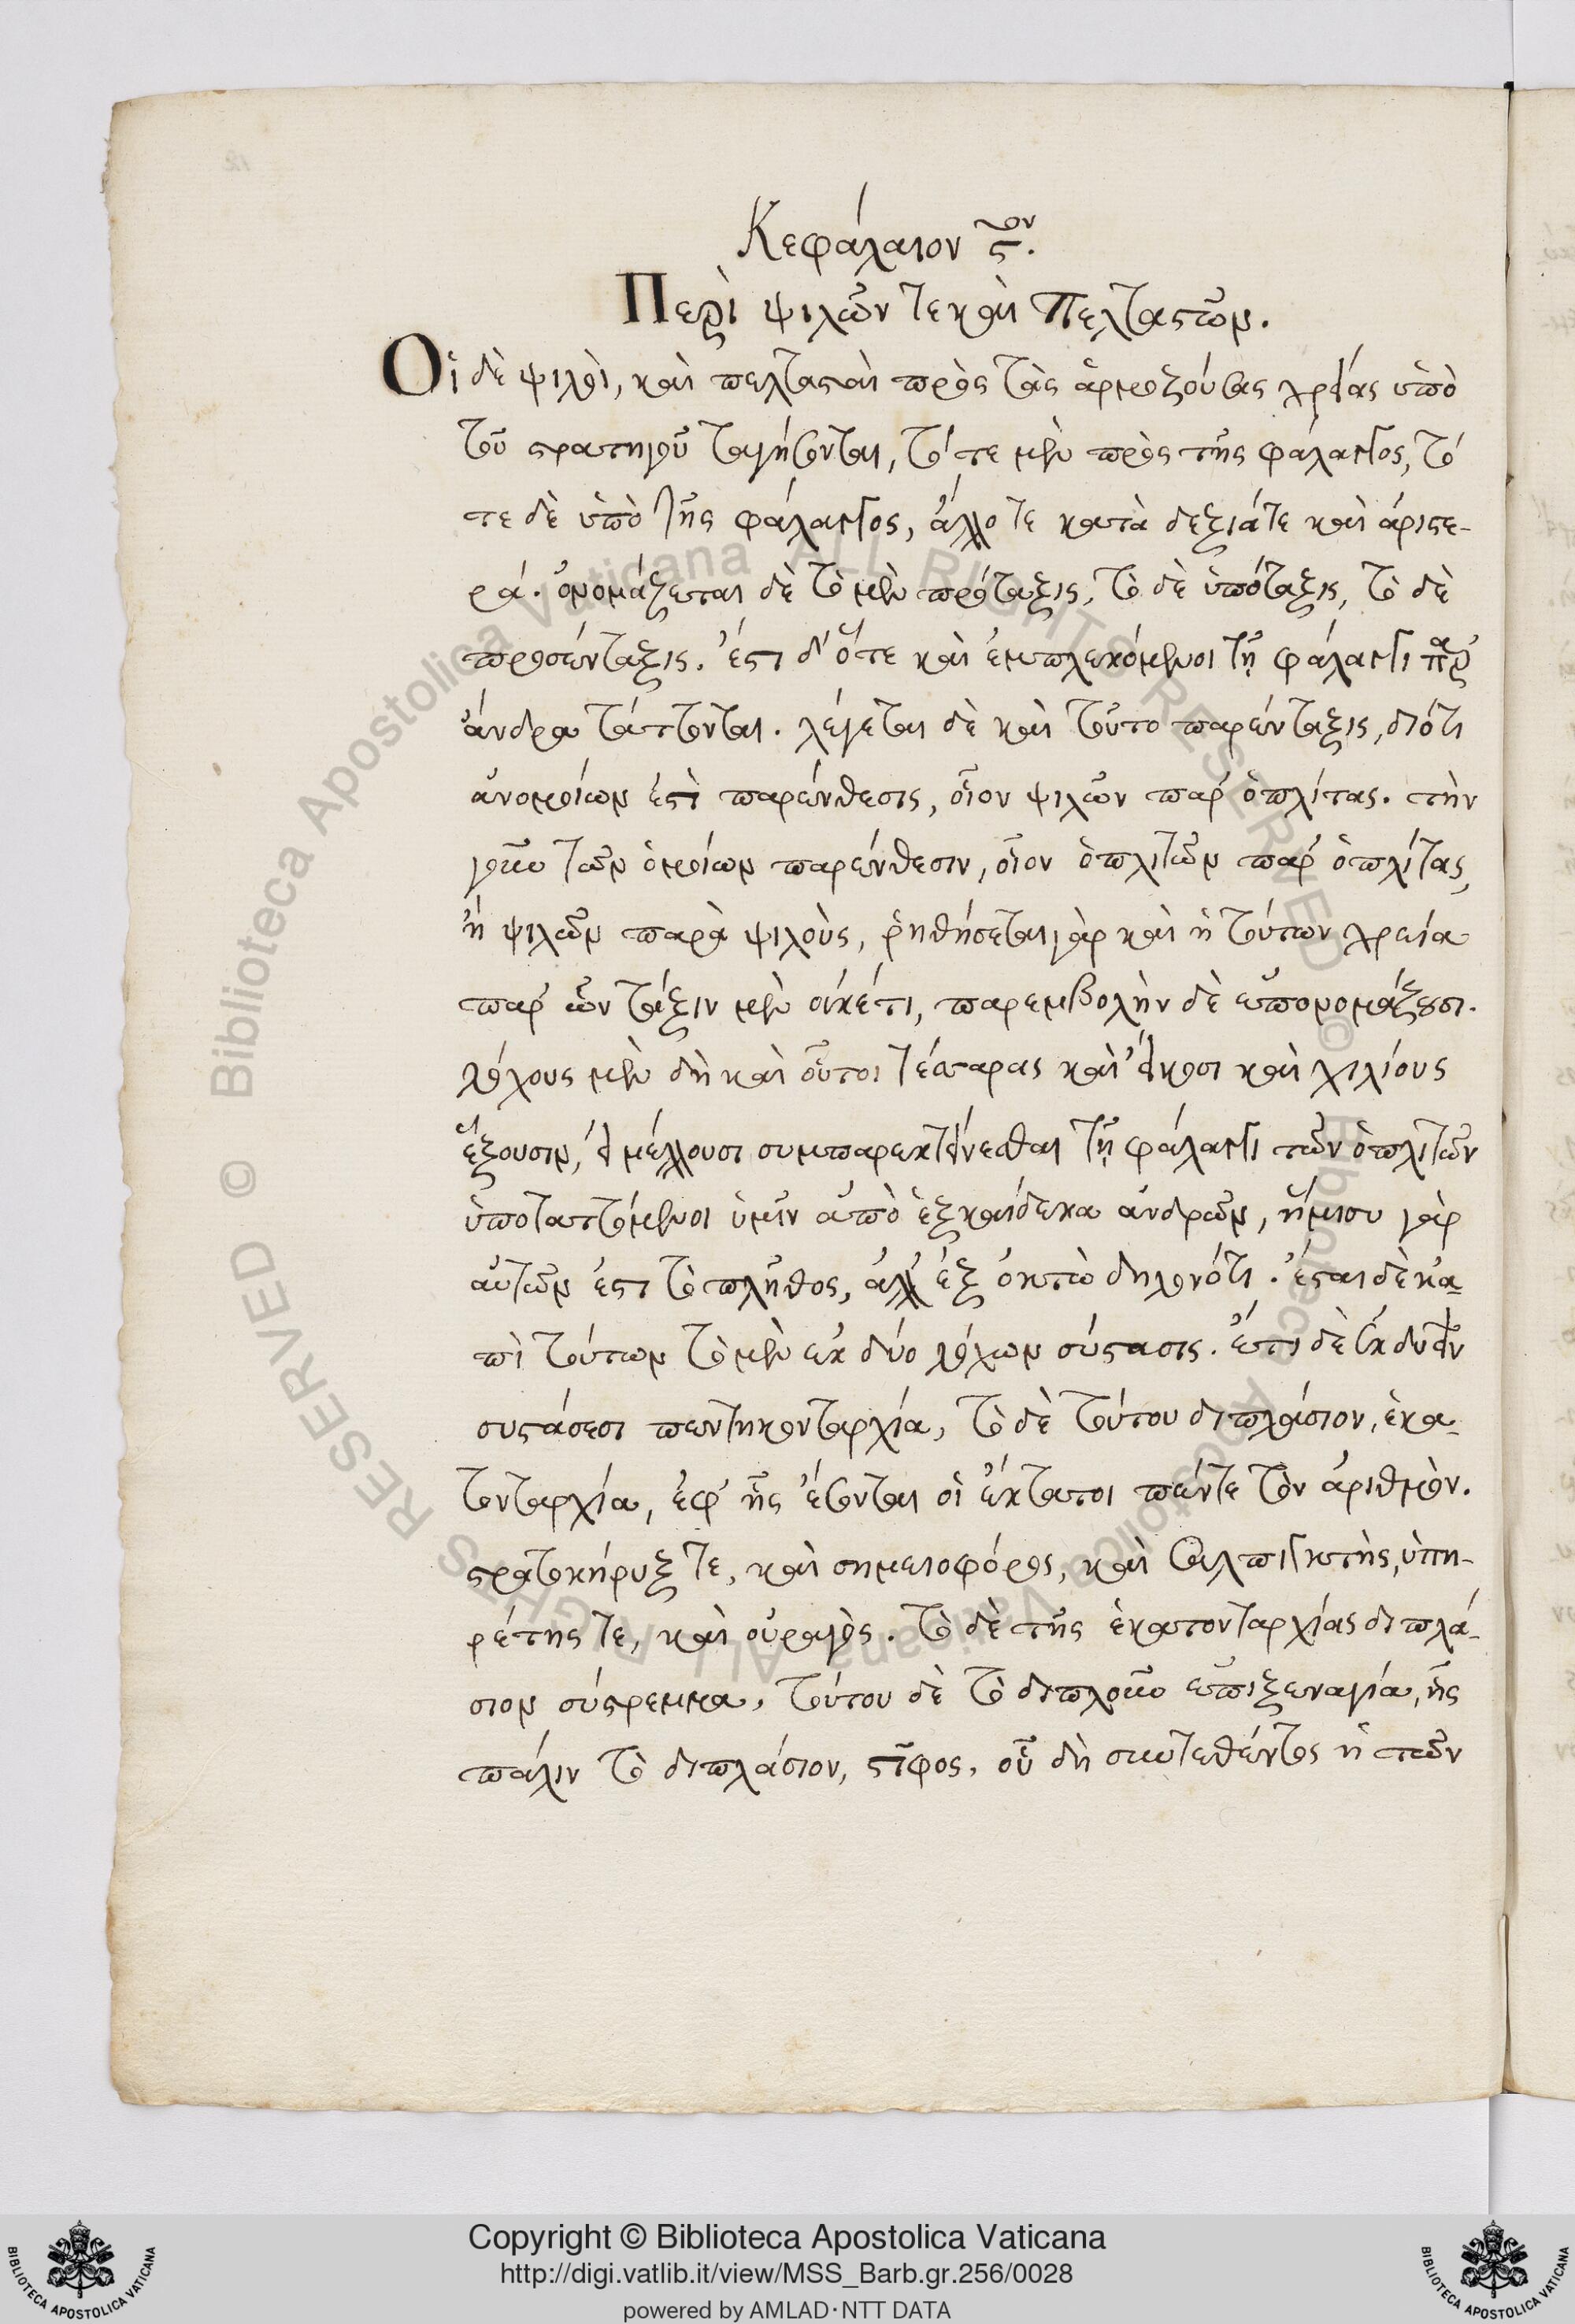 Κεφάλαιον ϛ̃ον.
Περὶ ψιλῶν τε καὶ Πελταστῶν.
Οἱ δὲ ψιλοὶ, καὶ πελτασταὶ πρὸς τὰς ἁρμοζούσας χρείας ὑπὸ
τοῦ στρατηγοῦ ταγήσονται, τό τε μὲν πρὸς τῆς φάλαγγος, τό
τε δὲ ὑπὸ τῆς φάλαγγος, ἄλλο τε κατὰ δεξιά τε καὶ ἀριστε-
ρά. ὀνομάζεται δὲ τὸ μὲν πρόταξις, τὸ δὲ ὑπόταξις, τὸ δὲ
προσένταξις. ἔστι δ' ὅτε καὶ ἐμπλεκόμενοι τῇ φάλαγγι παρ'
ἄνδρα τάττονται. λέγεται δὲ καὶ τοῦτο παρένταξις, διότι
ἀνομοίων ἐστὶ παρένθεσις, οἷον ψιλῶν παρ' ὁπλίτας. τὴν
γοῦν τῶν ὁμοίων παρένθεσιν, οἷον ὁπλιτῶν παρ' ὁπλίτας,
ἢ ψιλῶν παρὰ ψιλοὺς, ῥηθήσεται γὰρ καὶ ἡ τούτων χρεία
παρ' ὧν τάξιν μὲν οὐκέτι, παρεμβολὴν δὲ ἐπονομάζουσι.
λόχους μὲν δὴ καὶ οὗτοι τέσσαρας καὶ εἴκοσι καὶ χιλίους
ἕξουσιν, εἰ μέλλουσι συμπαρεκτείνεσθαι τῇ φάλαγγι τῶν ὁπλιτῶν
ὑποταττόμενοι ὑμῖν ἀπὸ ἑξκαίδεκα ἀνδρῶν, ἥμισυ γὰρ
αὐτῶν ἐστι τὸ πλῆθος, ἀλλ' ἐξ ὀκτὼ δηλονότι. ἔσται δὲ κἀ-
πὶ τούτων τὸ μὲν ἐκ δύο λόχων σύστασις. ἔτι δὲ ἐκ δυεῖν
συστάσεσι πεντηκονταρχία, τὸ δὲ τούτου διπλάσιον, ἑκα-
τονταρχία, ἐφ' ἧς ἔσονται οἱ ἔκτατοι πέντε τὸν ἀριθμὸν.
στρατοκήρυξ τε, καὶ σημειοφόρος, καὶ σαλπιγκτὴς, ὑπη-
ρέτης τε, καὶ οὐραγὸς. τὸ δὲ τῆς ἑκατονταρχίας διπλά-
σιον σύστρεμμα, τούτου δὲ τὸ διπλοῦν ἐπιξεναγία, ἧς
πάλιν τὸ διπλάσιον, στῖφος, οὗ δὴ συντεθέντος ἡ τῶν
Copyright © Biblioteca Apostolica Vaticana
http://digi.vatlib.it/view/MSS_Barb.gr.256/0028
powered by AMLAD·NTT DATA